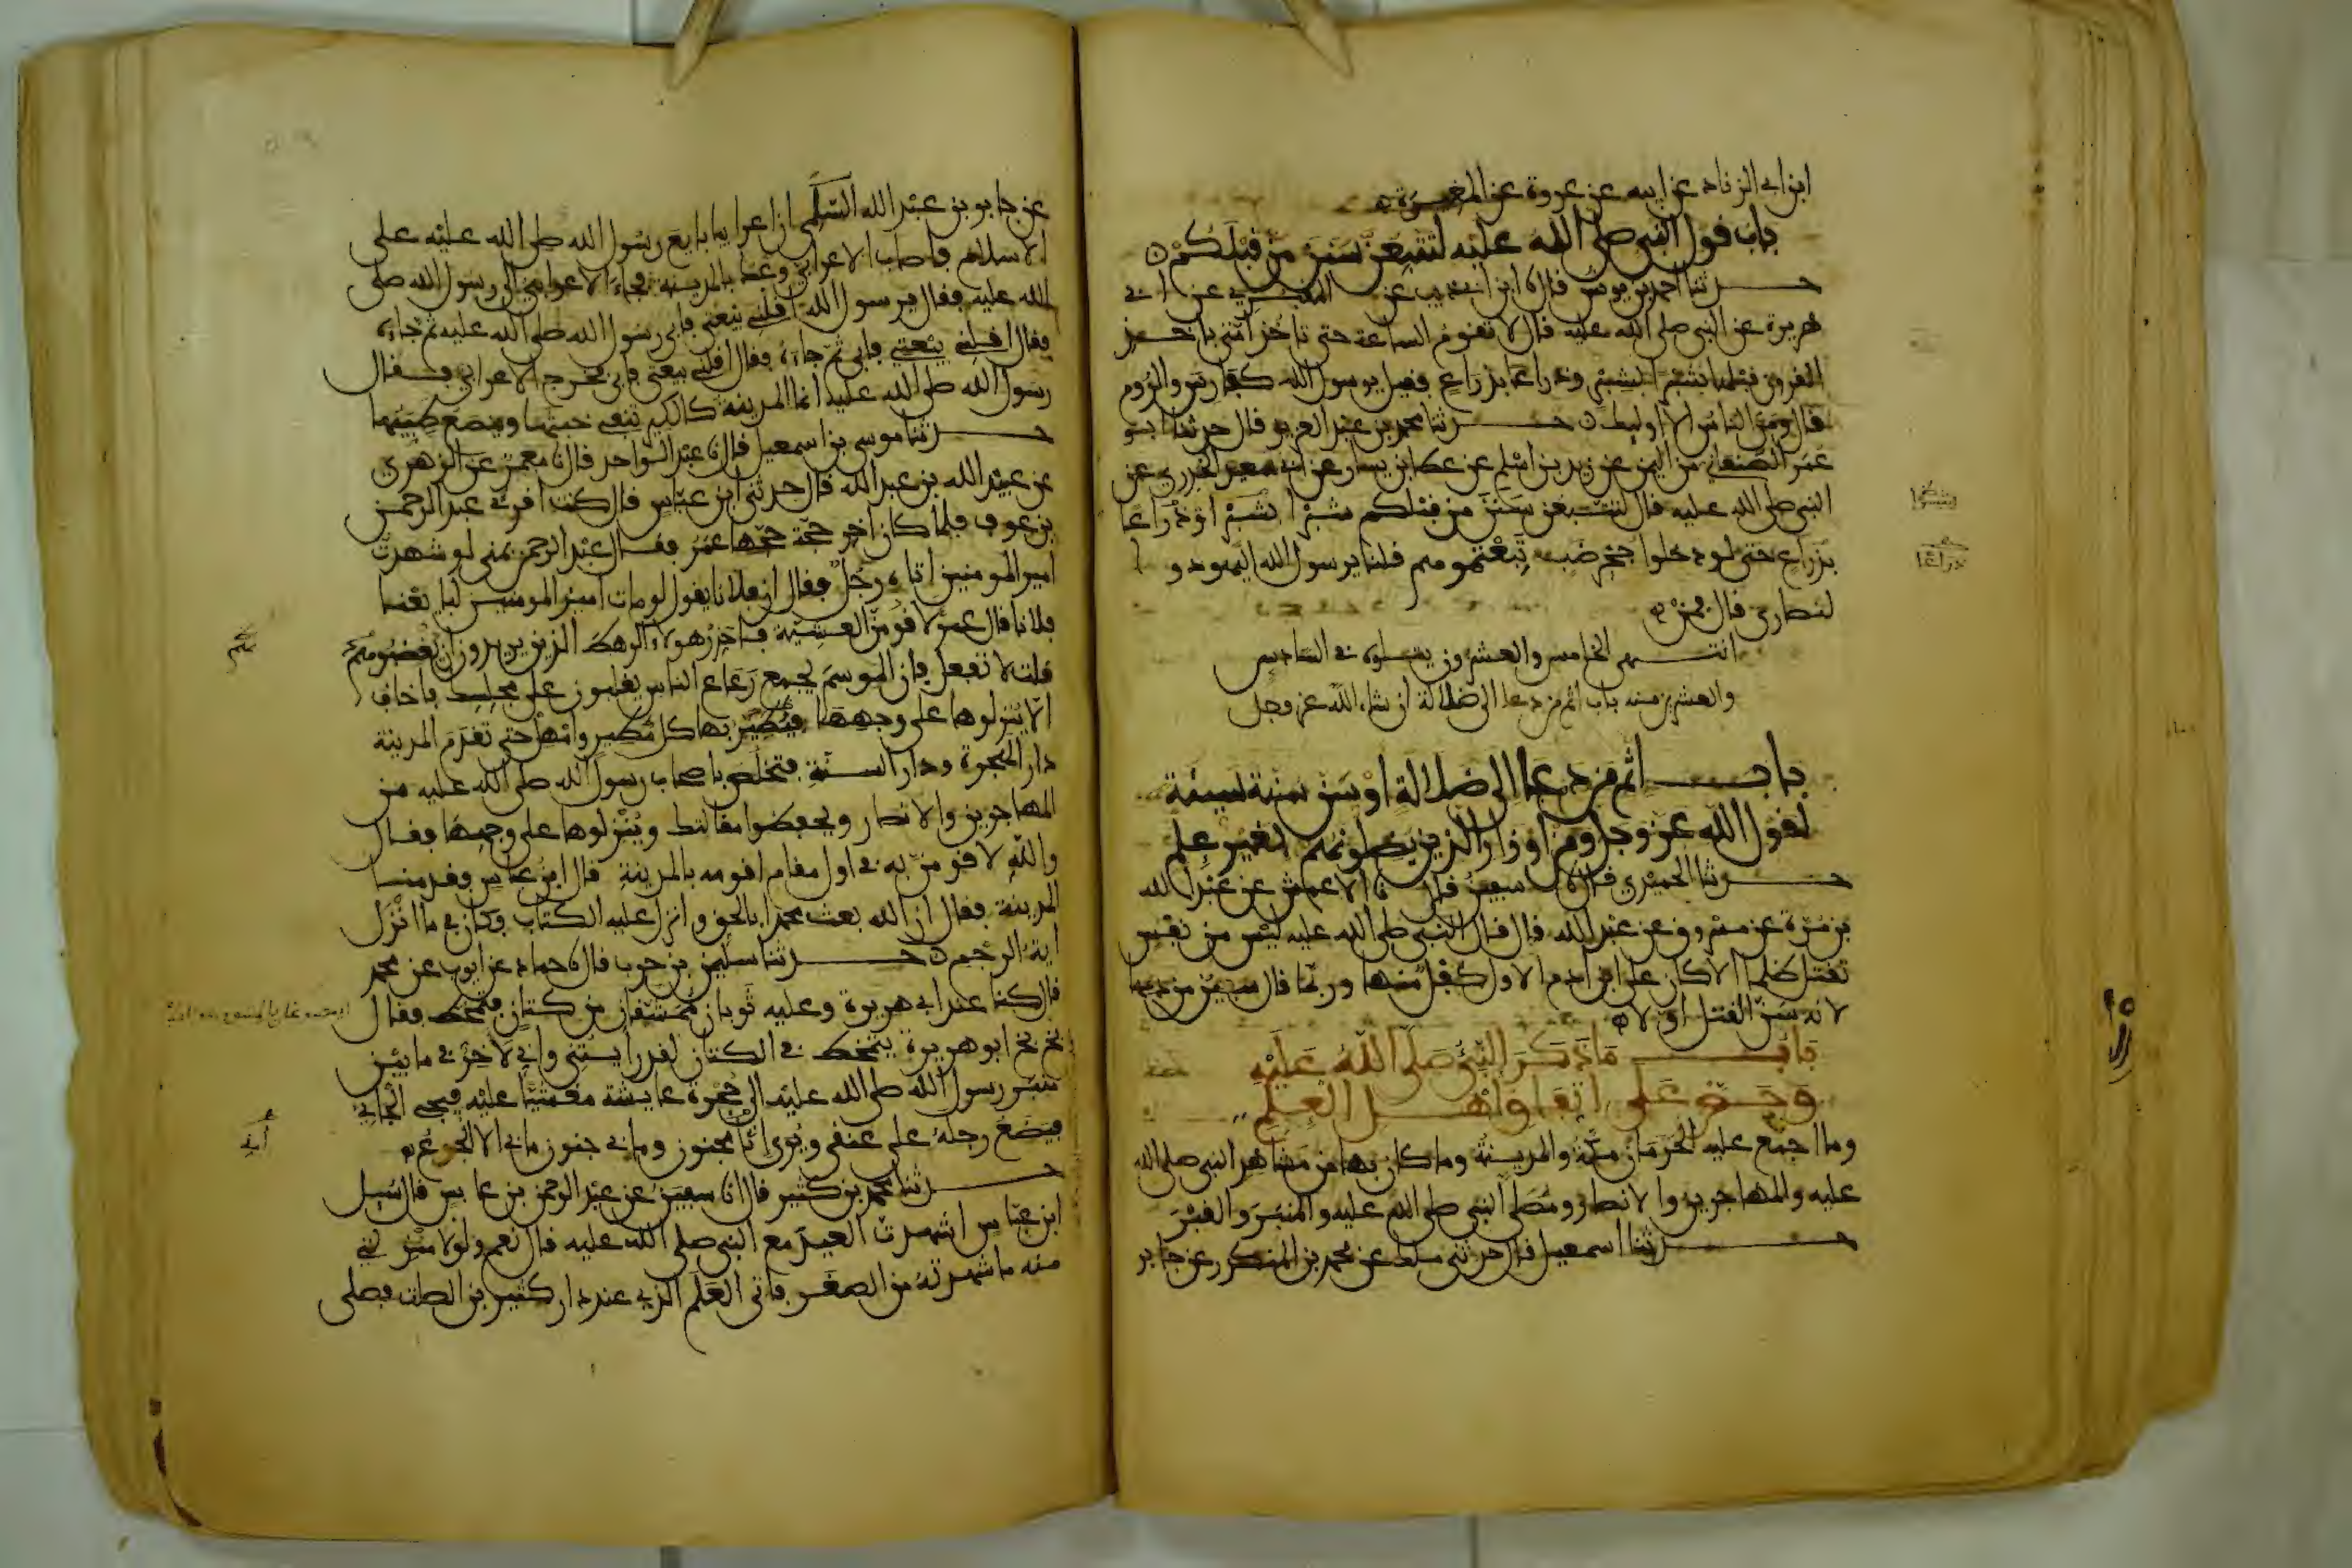 ابن ابي الزناد عن ابيه عن عروة عن المغيرة
باب قول النبي صلى الله عليه لتتبعن سنن من قبلكم
حدثنا احمد بن يونس قال نا ابن ابي ذيب عن المقبري عن ابي
هريرة عن النبي صلى الله عليه قال لا تقوم الساعة حتى تاخذ امتي باخذ
القرون قبلها شبرا بشبر وذراعا بذراع فقيل يرسول الله كفارس والروم
قال ومن الناس الا اوليك حدثنا محمد بن عبد العزيز قال حدثنا ابو
عمر الصنعاني من اليمن عن زيد بن اسلم عن عطا بن يسار عن ابي سعيد الخدري عن
النبي صلى الله عليه قال لتتبعن سنن من قبلكم شبرا بشبر او ذراعا
بذراع حتى لو دخلوا جحر ضب تبعتموهم قلنا يرسول الله اليهود وا
لنصارى قال فمن
انتهى الخامس والعشرون يتلوه في السادس
والعشرين منه باب اثم من دعا الى ضلالة ان شاء الله عز وجل
باب اثم من دعا الى ضلالة او سن سنة سيئة
لقول الله عز وجل ومن اوزار الذين يضلونهم بغير علم
حدثنا الحميدي قال نا سفين قال نا الاعمش عن عبد الله
بن مرة عن مسروق عن عبد الله قال قال النبي صلى الله عليه ليس من نفس
تقتل ظلما الا كان على ابن ادم الاول كفل منها وربما قال سفين من دمها
لانه سن القتل اولا
باب ما ذكر النبي صلى الله عليه
وحض على اتفاق اهل العلم
وما اجمع عليه الحرمان مكة والمدينة وما كان بها من مشاهد النبي صلى الله
عليه والمهاجرين والانصار ومصلى النبي صلى الله عليه والمنبر والقبر
حدثنا اسمعيل قال حدثني ملك عن محمد بن المنكدر عن جابر
عن جابر بن عبد الله السلمي ان اعرابيا بايع رسول الله صلى الله عليه على
الاسلام فاصاب الاعرابي وعك بالمدينة فجاء الاعرابي الى رسول الله صلى
الله عليه فقال يرسول الله اقلني بيعتي فابى رسول الله صلى الله عليه ثم جاءه
فقال اقلني بيعتي فابى ثم جاءه فقال اقلني بيعتي فابى فخرج الاعرابي فقال
رسول الله صلى الله عليه انما المدينة كالكير تنفي خبثها وينصع طيبها
حدثنا موسى بن اسمعيل قال نا عبد الواحد قال نا معمر عن الزهري
عن عبيد الله بن عبد الله قال حدثني ابن عباس قال كنت اقرئ عبد الرحمن
بن عوف فلما كان اخر حجة حجها عمر فقال عبد الرحمن بمنى لو شهدت
امير المومنين اتاه رجل فقال ان فلانا يقول لو مات امير المومنين لبايعنا
فلانا قال عمر لاقومن العشية فاحذر هولاء الرهط الذين يريدون ان يغضبوهم
قلت لا تفعل فان الموسم يجمع رعاع الناس يغلبون على مجلسك فاخاف
الا ينزلوها على وجهها فيطير بها كل مطير وامهل حتى تقدم المدينة
دار الهجرة ودار السنة فتخلص باصحاب رسول الله صلى الله عليه من
المهاجرين والانصار ويحفظوا مقالتك وينزلوها على وجهها فقال
والله لاقومن به في اول مقام اقومه بالمدينة قال ابن عباس وقدمنا
المدينة فقال ان الله بعث محمدا بالحق وانزل عليه الكتاب وكان في ما انزل
اية الرجم حدثنا سليمن بن حرب قال نا حماد عن ايوب عن محمد
قال كنا عند ابي هريرة وعليه ثوبان ممشقان من كتان فتمخط فقال
بخ بخ ابو هريرة يتمخط في الكتان لقد رايتني واني لاخر في ما بين
منبر رسول الله صلى الله عليه الى حجرة عايشة مغشيا عليه فيجي الجائي
فيضع رجله على عنقي ويرى انا مجنون وما بي جنون ما بي الا الجوع
حدثنا محمد بن كثير قال انا سفين عن عبد الرحمن بن عابس قال سيل
ابن عباس اشهدت العيد مع النبي صلى الله عليه قال نعم ولولا منزلتي
منه ما شهدته من الصغر فاتى العلم الذي عند دار كثير بن الصلت فصلى